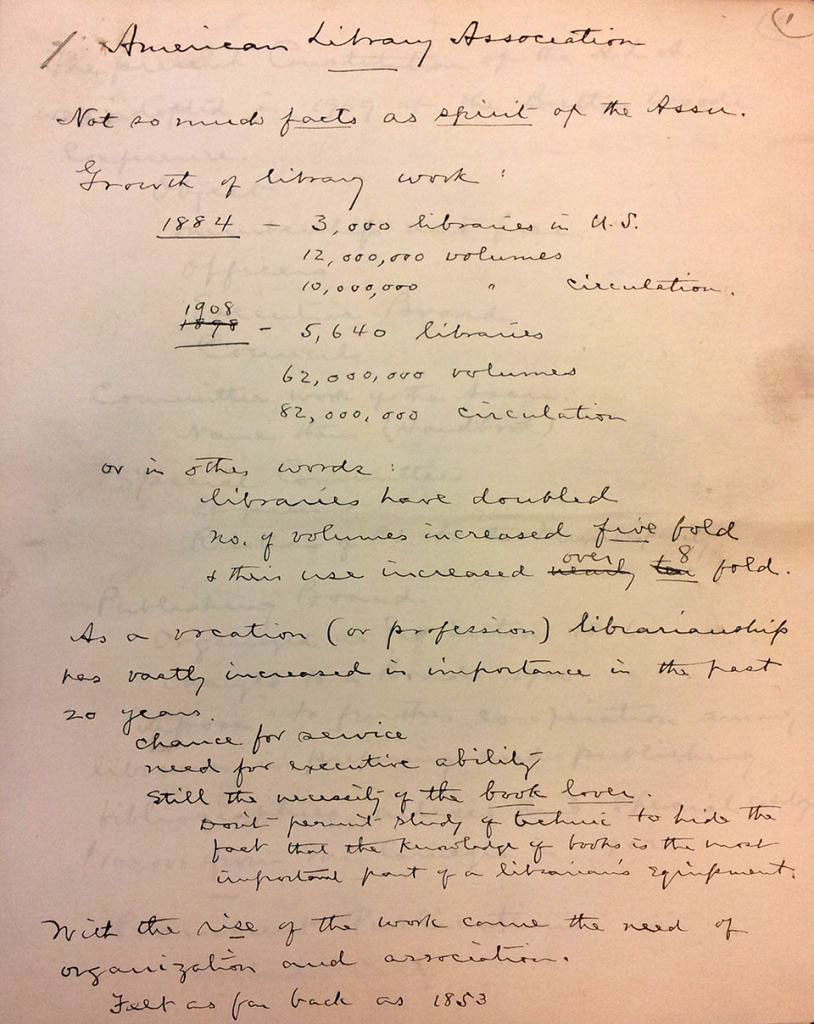 1
/ American Library Association
Not so much facts as spirit of the Assn.
Growth of library work :
1884 - 3,000 libraries in U.S.
12,000,000 volumes
10,000,000 " circulation.
1908
1898 - 5,640 libraries
62,000,000 volumes
82,000,000 circulation
or in other words :
libraries have doubled
no. of volumes increased five fold
over 8
& their use increased nearly ten fold.
As a vocation (or profession) librarianship
has vastly increased in importance in the past
20 years.
chance for service
need for executive ability
Still the necessity of the book lover.
Don't permit study of technic to hide the
fact that the knowledge of books is the most
important part of a librarian's equipment.
With the rise of the work came the need of
organization and association.
Felt as far back as 1853